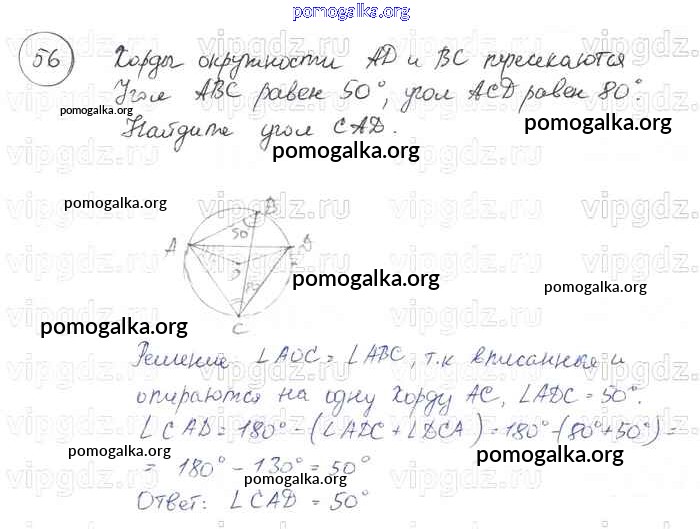 pomogalka.org
56 Хорды окружности AD и BC пересекаются
Угол ABC равен 50°, угол ACD равен 80°.
pomogalka.org
pomogalka.org
Найдите угол CAD.
pomogalka.org
vipgdz.ru vipgdz.ru vipgdz.ru
pomogalka.org
B
50
A
D
80
C
pomogalka.org
pomogalka.org
pomogalka.org
Решение ∠ADC = ∠ABC, т.к вписанная и
опираются на одну хорду AC, ∠ADC = 50°.
∠CAD = 180° - (∠ADC + ∠DCA) = 180° - (80° + 50°) =
pomogalka.org
= 180° - 130° = 50°
pomogalka.org
pomogalka.org
Ответ: ∠CAD = 50°